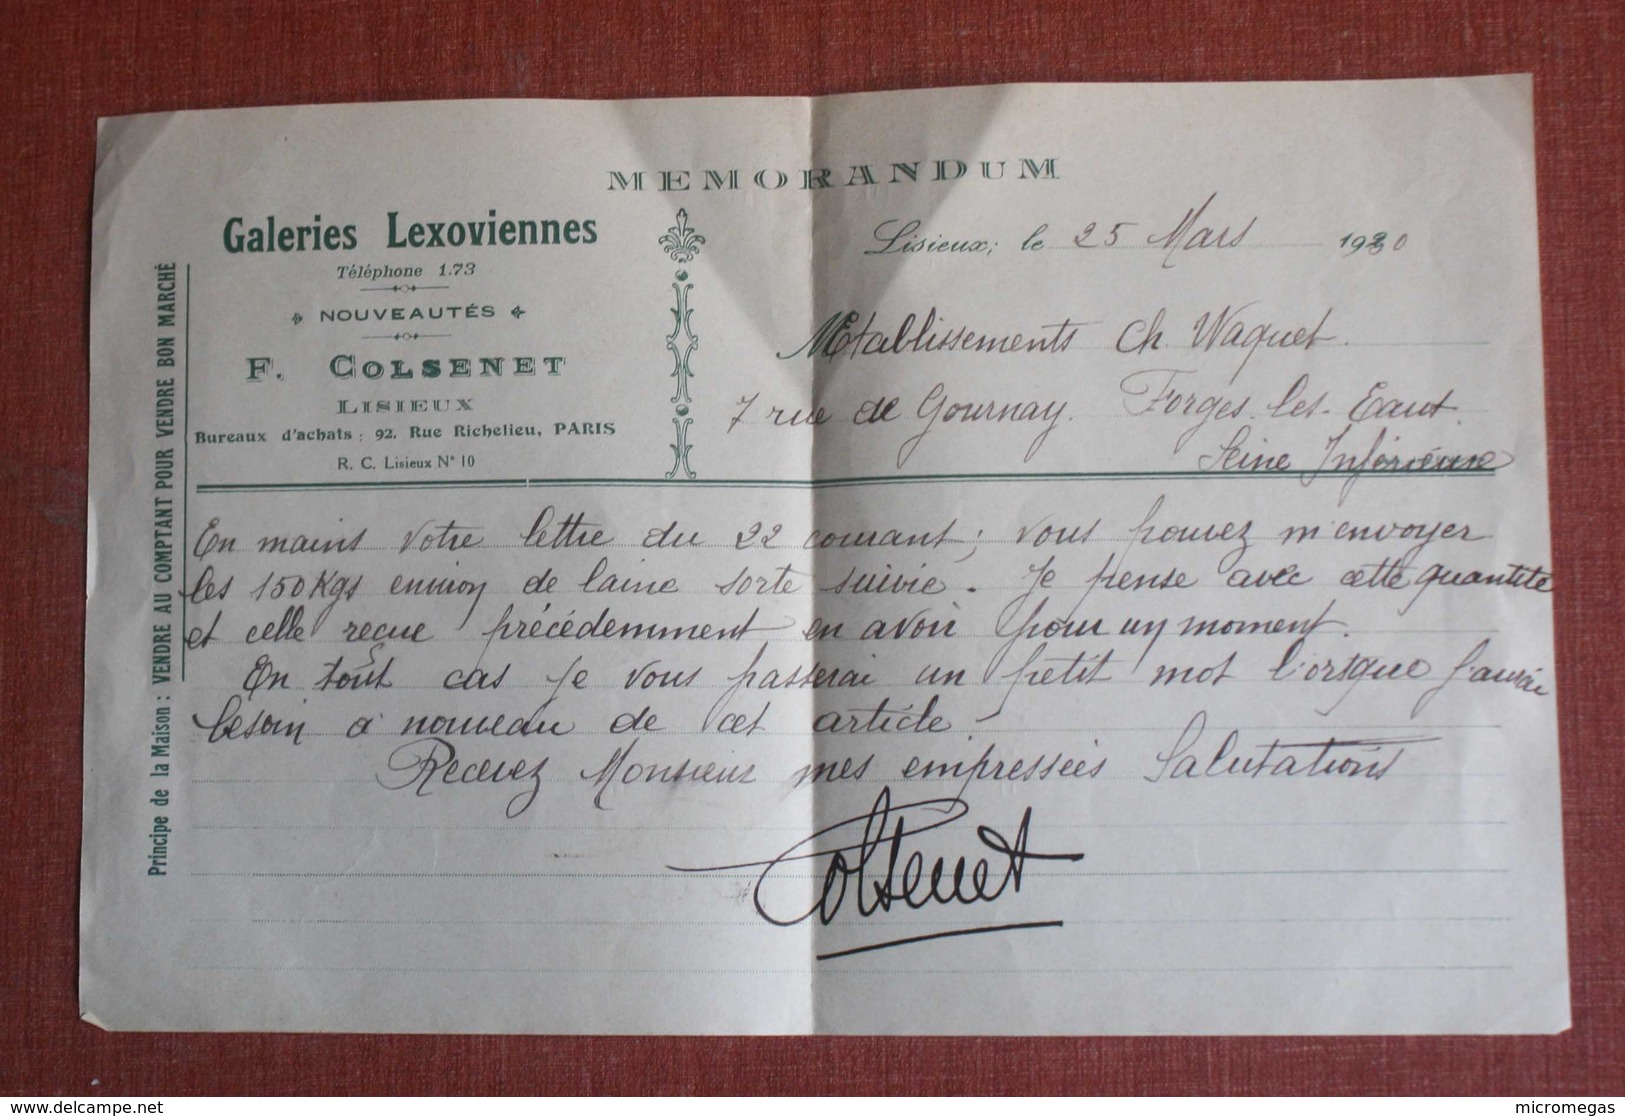 MEMORANDUM
Galeries Lexoviennes
Téléphone 1.73
NOUVEAUTÉS
F. COLSENET
LISIEUX
Bureaux d'achats : 92, Rue Richelieu, PARIS
R. C. Lisieux N° 10
Principe de la Maison : VENDRE AU COMPTANT POUR VENDRE BON MARCHÉ
Lisieux, le 25 Mars 1930
Etablissements Ch. Waquet.
7 rue de Gournay. Forges-les-Eaux.
Seine Inférieure
En mains votre lettre du 22 courant; vous pouvez m'envoyer
les 150 Kgs environ de laine sorte suivie. Je pense avec cette quantité
et celle reçue précédemment en avoir pour un moment.
En tout cas je vous passerai un petit mot lorsque j'aurai
besoin à nouveau de cet article.
Recevez Monsieur mes empressées Salutations
Colsenet
Delcampe.net
micromegas